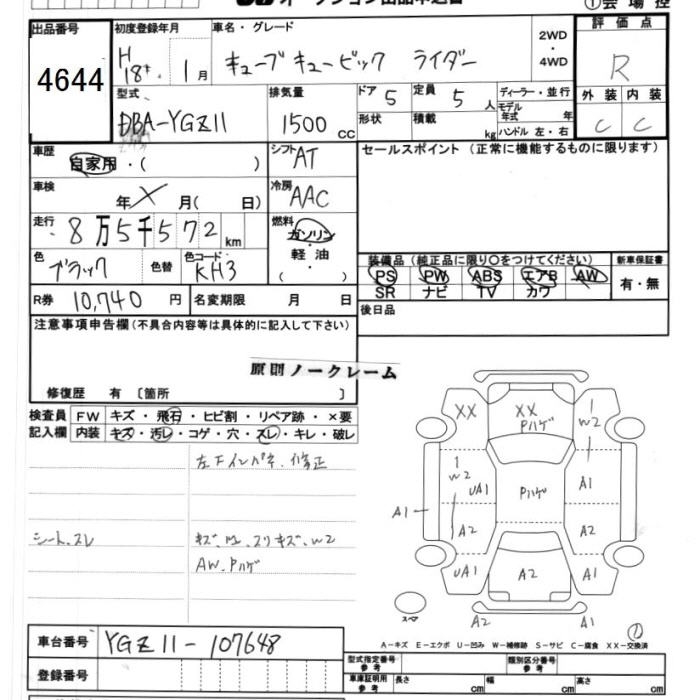 オークション出品申込書
①会場控
出品番号
4644
初度登録年月
H 18年 1月
車名・グレード
キューブ キュービック ライダー
2WD・4WD
評価点
R
型式
DBA-YGZ11
排気量
1500 CC
ドア 5
定員 5人
形状
積載 kg
ディーラー・並行
モデル年式 年
ハンドル 左・右
外装 内装
C C
車歴
自家用・( )
シフト AT
セールスポイント (正常に機能するものに限ります)
車検
年 X 月( 日)
冷房 AAC
走行
8万5千572 km
燃料
ガソリン・軽油・( )
色 ブラック
色替
色コード KH3
装備品 (純正品に限り○をつけてください)
新車保証書
PS PW ABS エアB AW
SR ナビ TV カワ
有・無
R券 10,740 円
名変期限 月 日
後日品
注意事項申告欄(不具合内容等は具体的に記入して下さい)
原則ノークレーム
修復歴 有 〔箇所 〕
検査員記入欄
FW キズ・飛石・ヒビ割・リペア跡・×要
内装 キズ・汚レ・コゲ・穴・スレ・キレ・破レ
左下インパネ、修正
シート、スレ
AW、Pハゲ
XX
XX
Pハゲ
W2
W2
UA1
Pハゲ
A1
A1
A2
A2
UA1
A2
A1
スペア
A2
A1
A-キズ E-エクボ U-凹み W-補修跡 S-サビ C-腐食 XX-交換済
車台番号
YGZ11-107648
登録番号
型式指定番号 参考
類別区分番号 参考
車庫証明用 参考
長さ cm
幅 cm
高さ cm